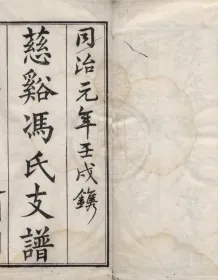 同治元年壬戌鐫
慈谿馮氏支譜